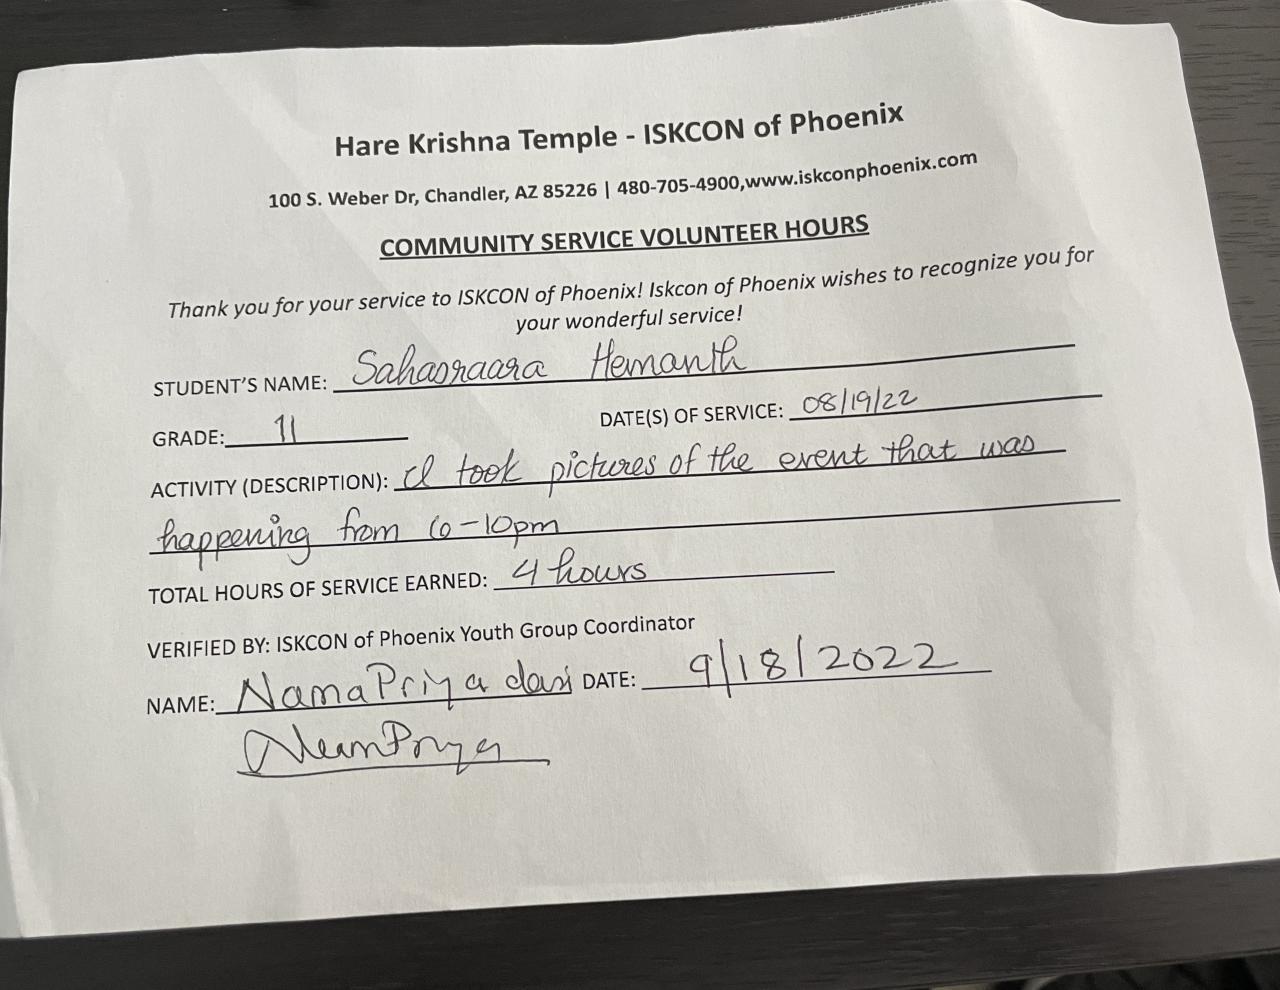 Hare Krishna Temple - ISKCON of Phoenix
100 S. Weber Dr, Chandler, AZ 85226 | 480-705-4900,www.iskconphoenix.com
COMMUNITY SERVICE VOLUNTEER HOURS
Thank you for your service to ISKCON of Phoenix! Iskcon of Phoenix wishes to recognize you for
your wonderful service!
STUDENT'S NAME: Sahasraara Hemanth
GRADE: 11 DATE(S) OF SERVICE: 08/19/22
ACTIVITY (DESCRIPTION): I took pictures of the event that was
happening from 6-10pm
TOTAL HOURS OF SERVICE EARNED: 4 hours
VERIFIED BY: ISKCON of Phoenix Youth Group Coordinator
NAME: NamaPriya dasi DATE: 9/18/2022